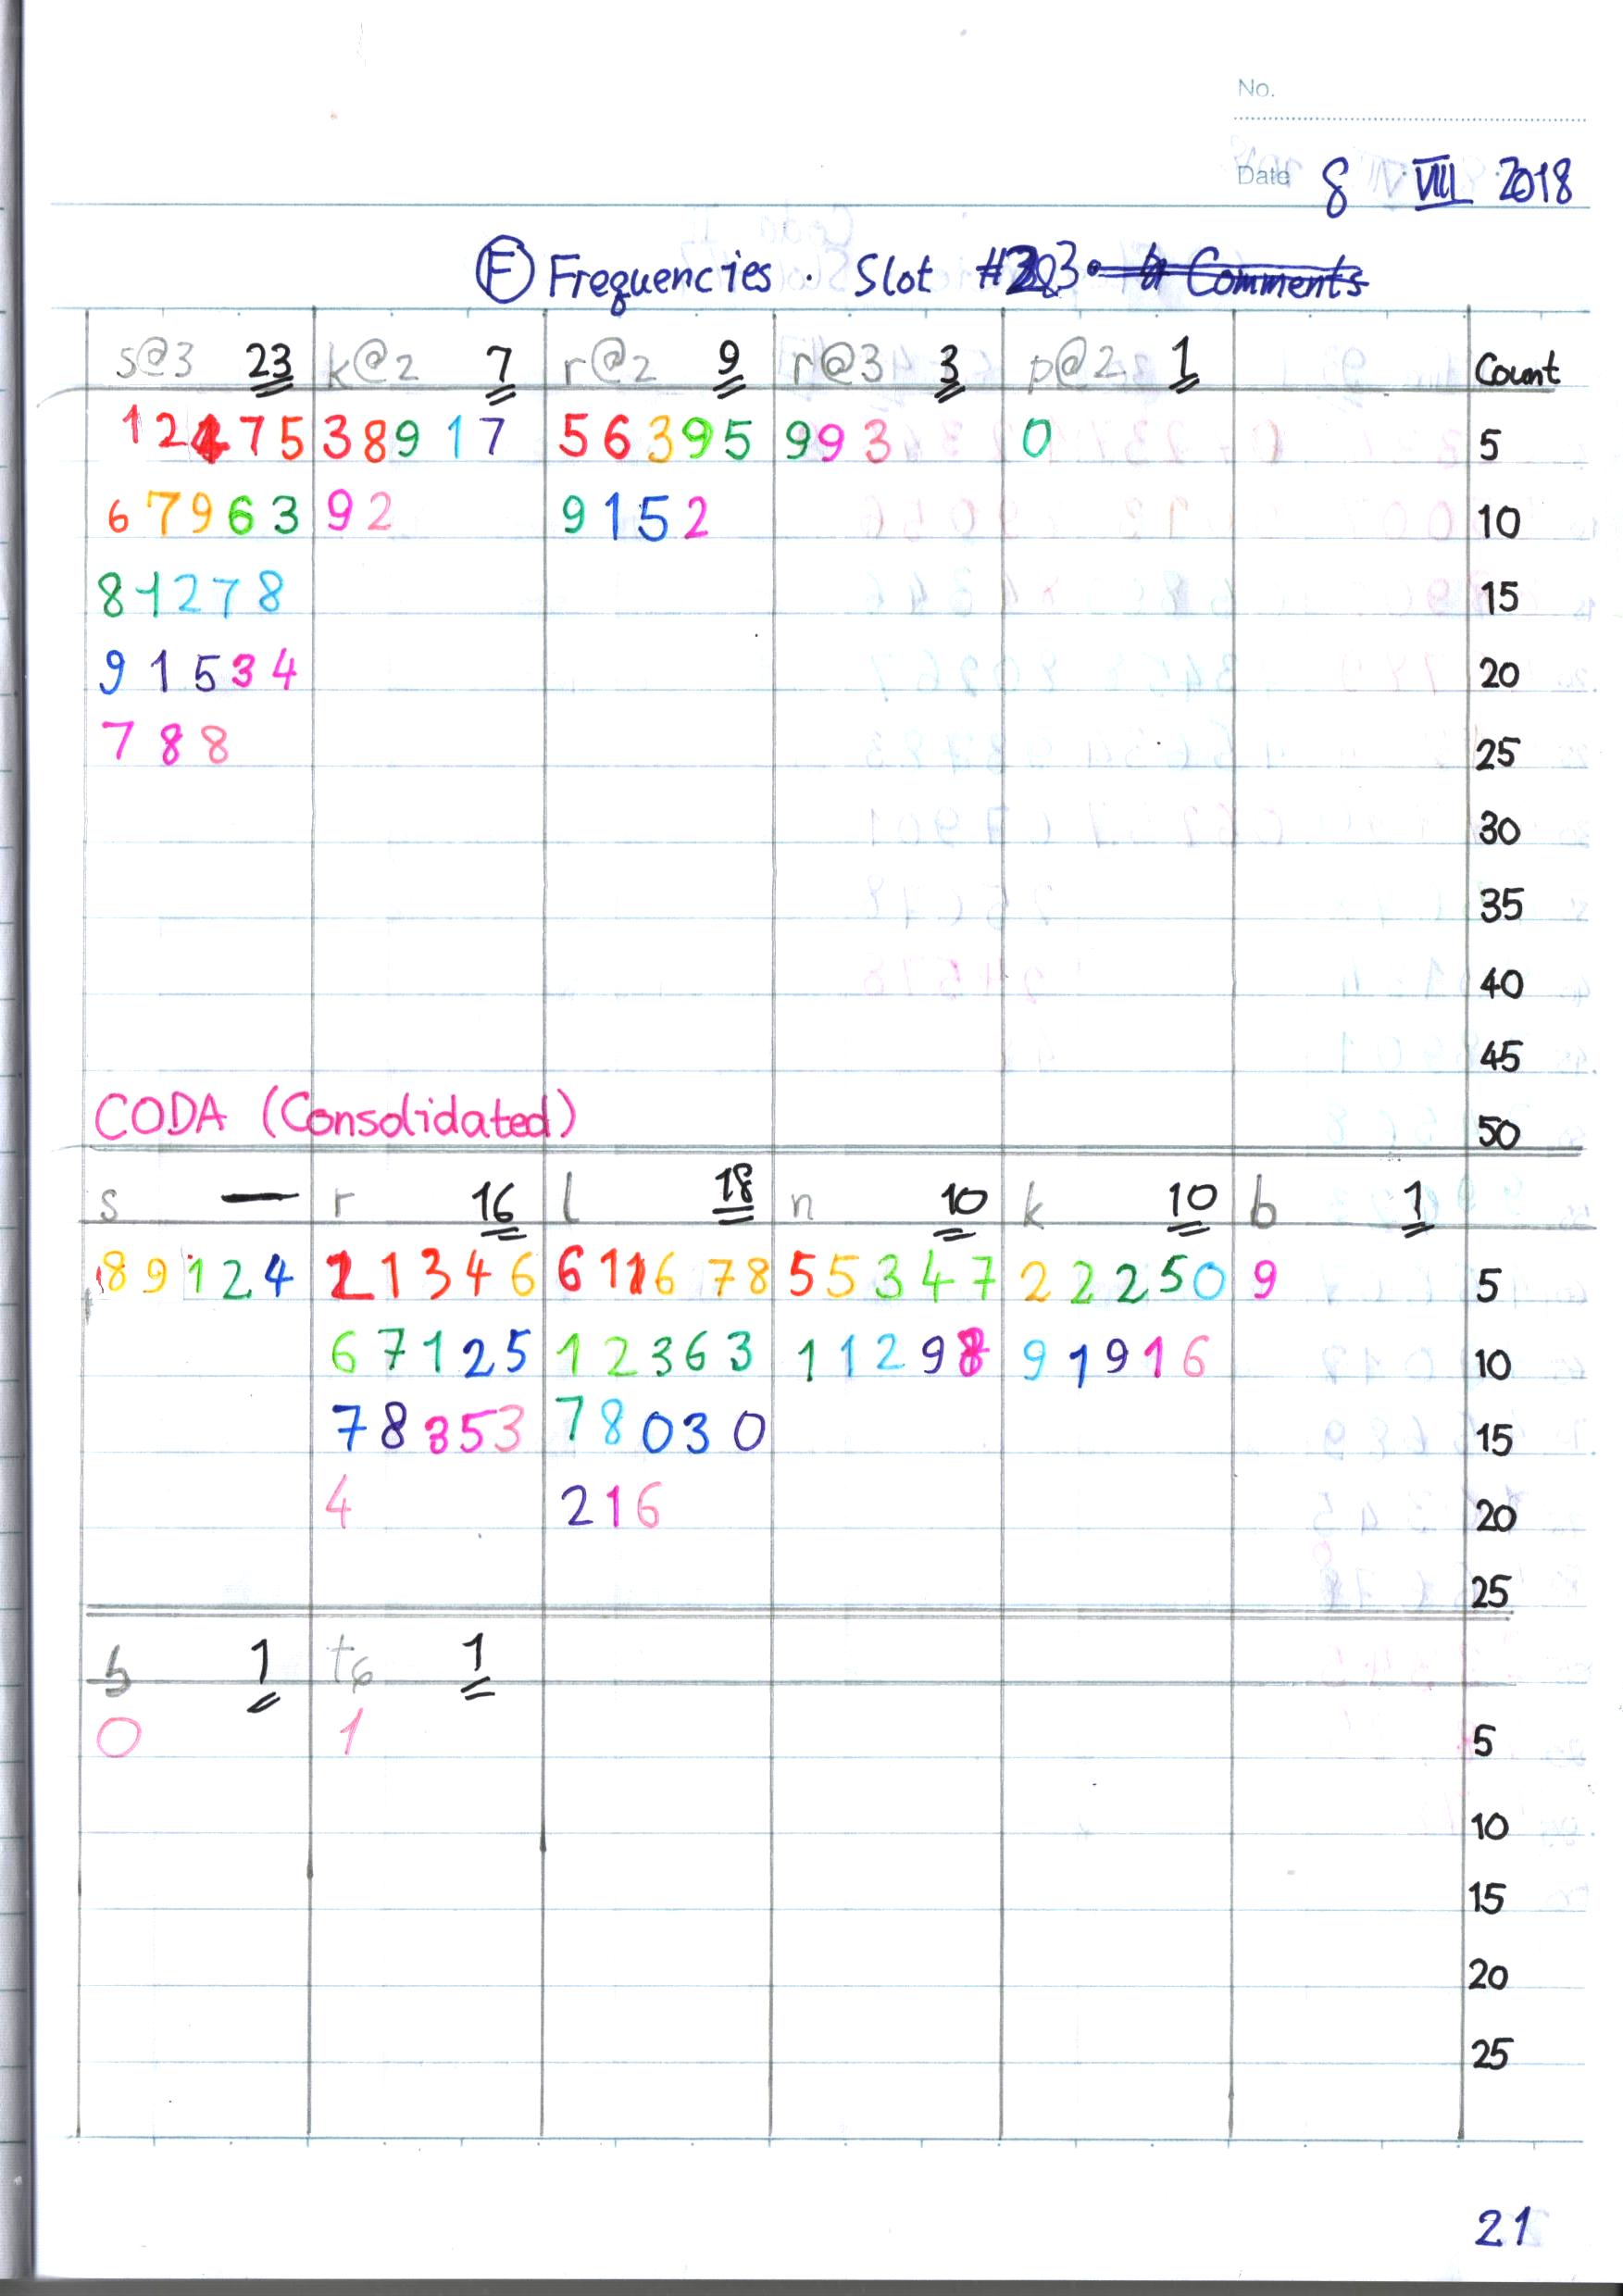 No.
Date 8 VIII 2018
Ⓕ Frequencies . Slot #3 Comments
s@3 23 k@2 7 r@2 9 r@3 3 p@2 1 Count
1 2 4 7 5 3 8 9 1 7 5 6 3 9 5 9 9 3 0 5
6 7 9 6 3 9 2 9 1 5 2 10
8 1 2 7 8 15
9 1 5 3 4 20
7 8 8 25
30
35
40
45
CODA (Consolidated) 50
s — r 16 l 18 n 10 k 10 b 1
8 9 1 2 4 2 1 3 4 6 6 1 1 6 7 8 5 5 3 4 7 2 2 2 5 0 9 5
6 7 1 2 5 1 2 3 6 3 1 1 2 9 8 9 1 9 1 6 10
7 8 3 5 3 7 8 0 3 0 15
4 2 1 6 20
25
1 t6 1
0 1 5
10
15
20
25
21